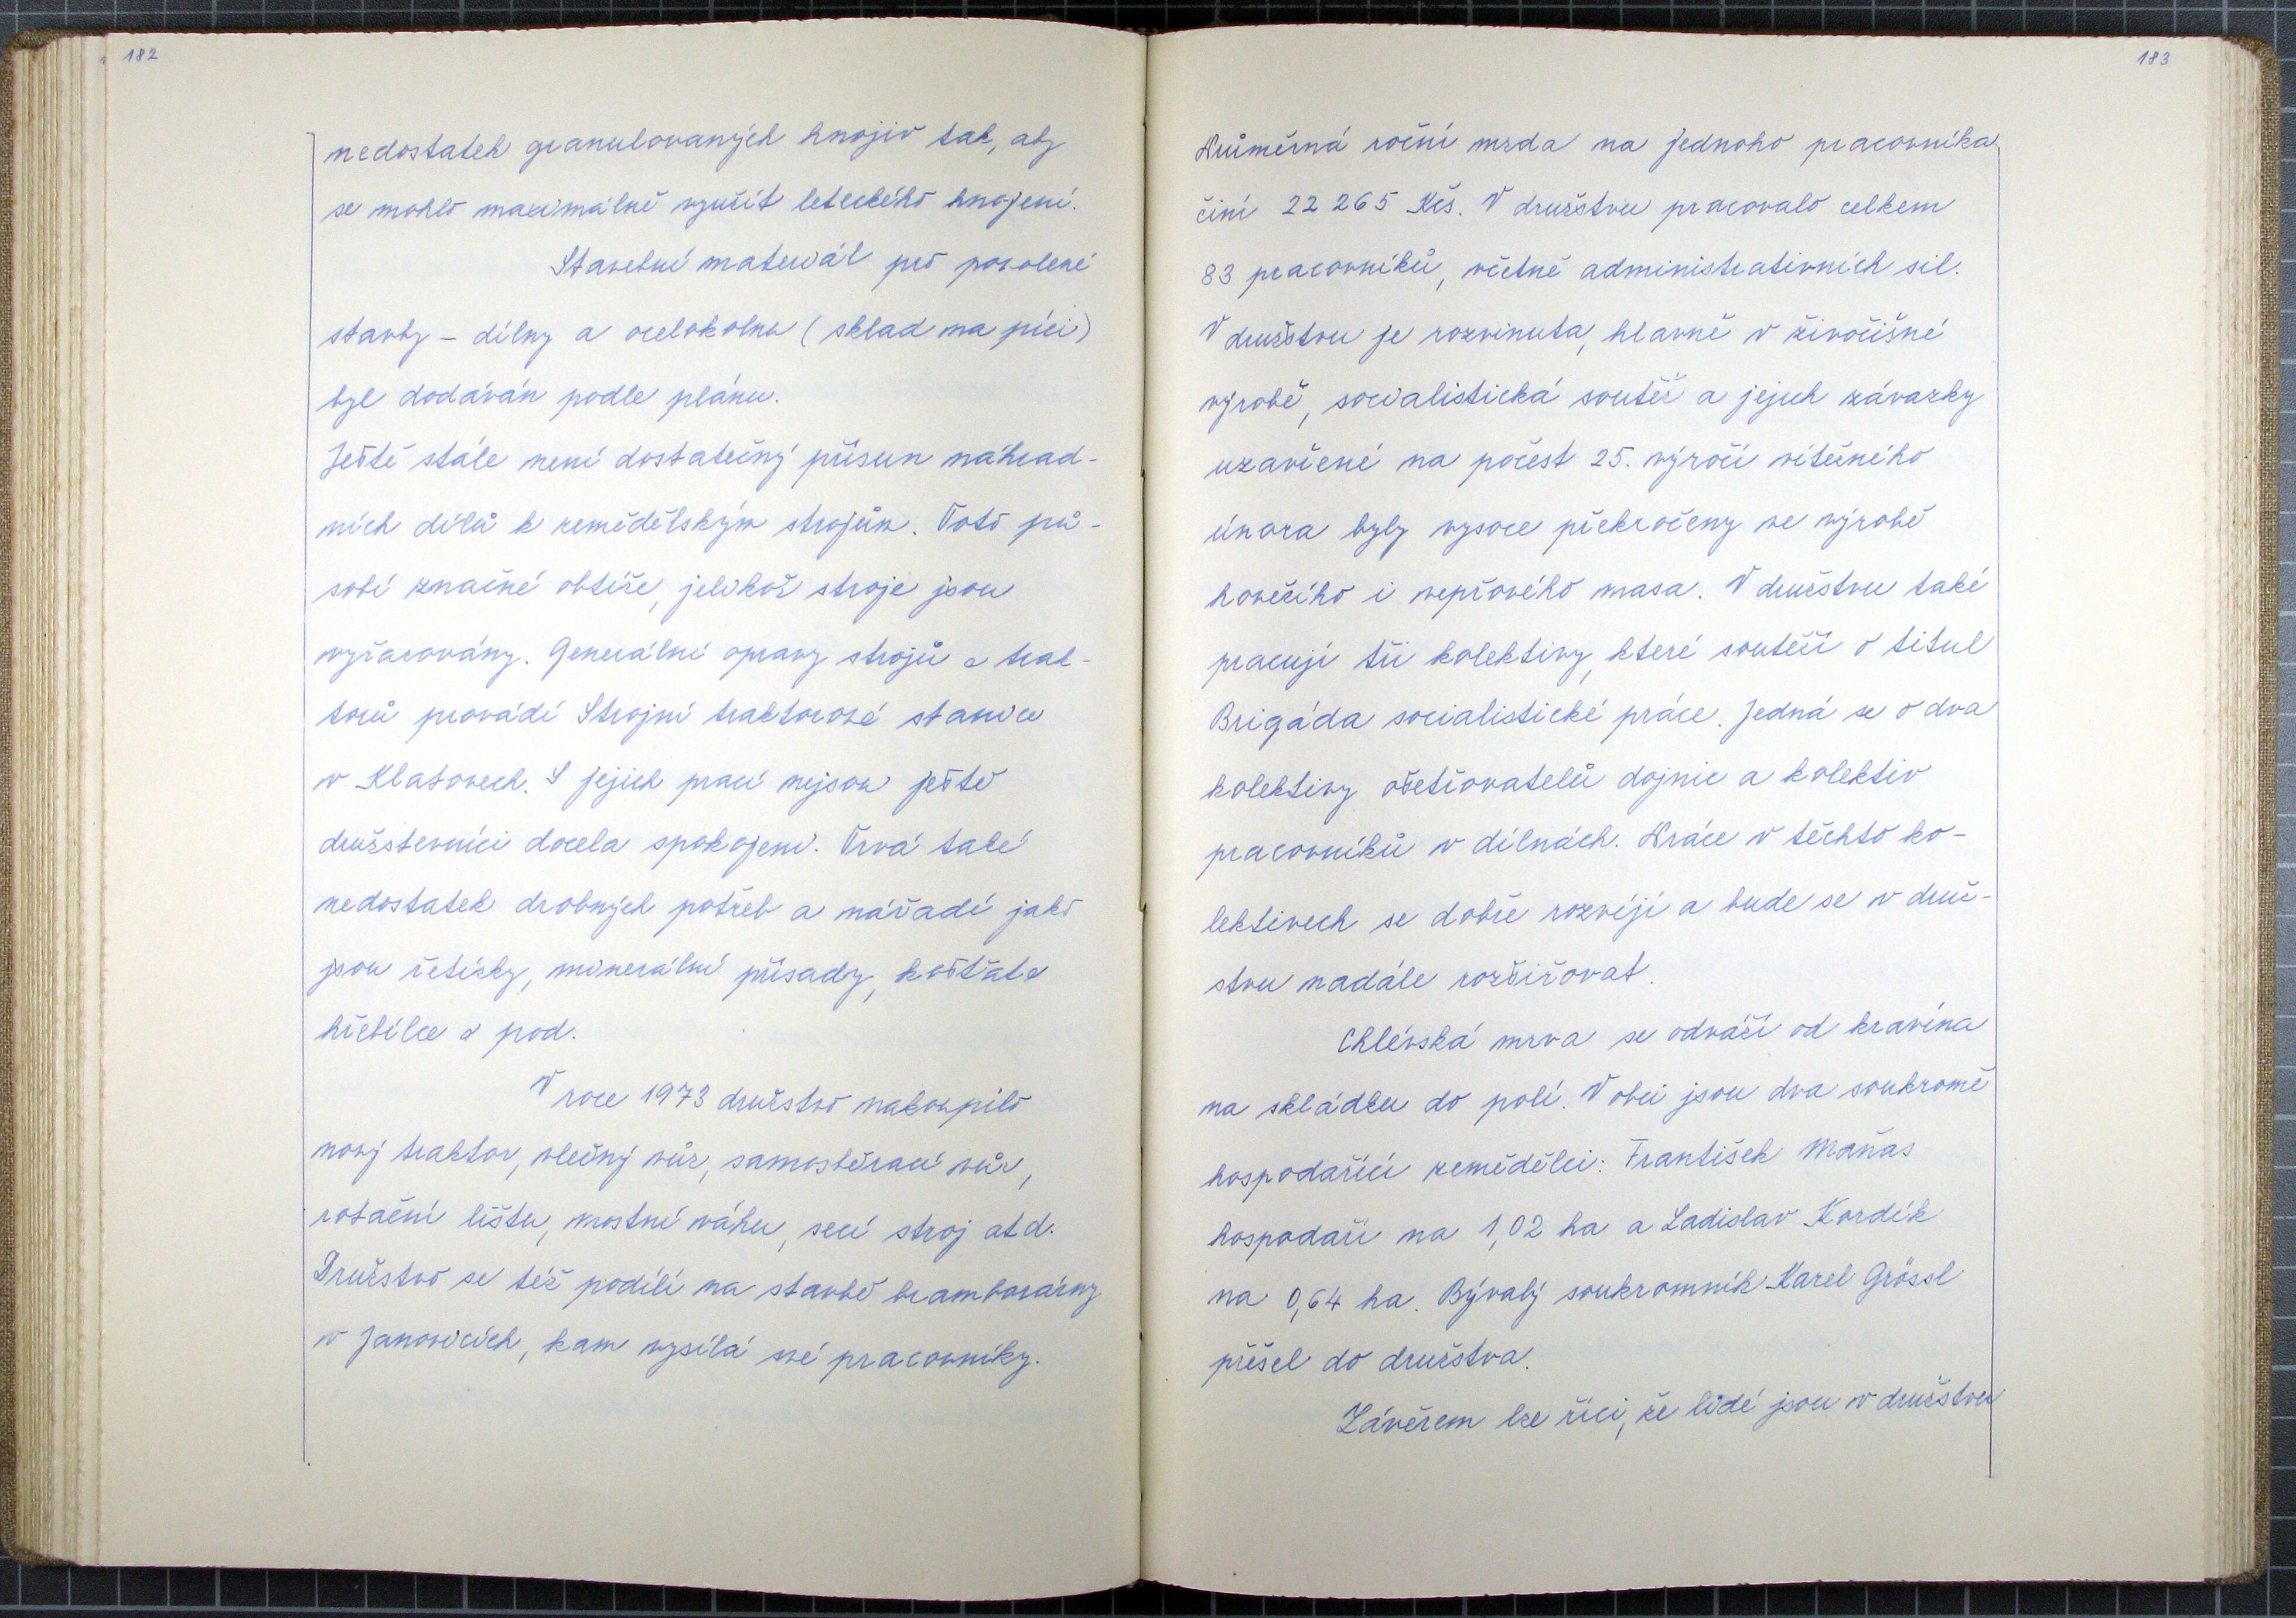 182
nedostatek granulovaných hnojiv tak, aby
se mohlo maximálně využít leteckého hnojení.
Stavební materiál pro povolené
stavby – dílny a ocelokolnu (sklad na píci)
byl dodáván podle plánu.
Ještě stále není dostatečný přísun náhrad-
ních dílů k zemědělským strojům. Toto pů-
sobí značné obtíže, jelikož stroje jsou
vyřazovány. Generální opravy strojů a trak-
torů provádí Strojní traktorové stanice
v Klatovech. S jejich prací nejsou ještě
družstevníci docela spokojeni. Trvá také
nedostatek drobných potřeb a nářadí jako
jsou řetízky, minerální přísady, košťata
hřebílce a pod.
V roce 1973 družstvo nakoupilo
nový traktor, vlečný vůz, samosběrací vůz,
rotační lištu, mostní váhu, secí stroj atd.
Družstvo se též podílí na stavbě bramborárny
v Janovicích, kam vysílá své pracovníky.
183
Průměrná roční mzda na jednoho pracovníka
činí 22 265 Kčs. V družstvu pracovalo celkem
83 pracovníků, včetně administrativních sil.
V družstvu je rozvinuta, hlavně v živočišné
výrobě, socialistická soutěž a jejich závazky
uzavřené na počest 25. výročí vítězného
února byly vysoce překročeny ve výrobě
hovězího i vepřového masa. V družstvu také
pracují tři kolektivy, které soutěží o titul
Brigáda socialistické práce. Jedná se o dva
kolektivy ošetřovatelů dojnic a kolektiv
pracovníků v dílnách. Práce v těchto ko-
lektivech se dobře rozvíjí a bude se v druž-
stvu nadále rozšiřovat.
Chlévská mrva se odváží od kravína
na skládku do polí. V obci jsou dva soukromě
hospodařící zemědělci: František Maňas
hospodaří na 1,02 ha a Ladislav Kordík
na 0,64 ha. Bývalý soukromník Karel Grössl
přešel do družstva.
Závěrem lze říci, že lidé jsou v družstvu